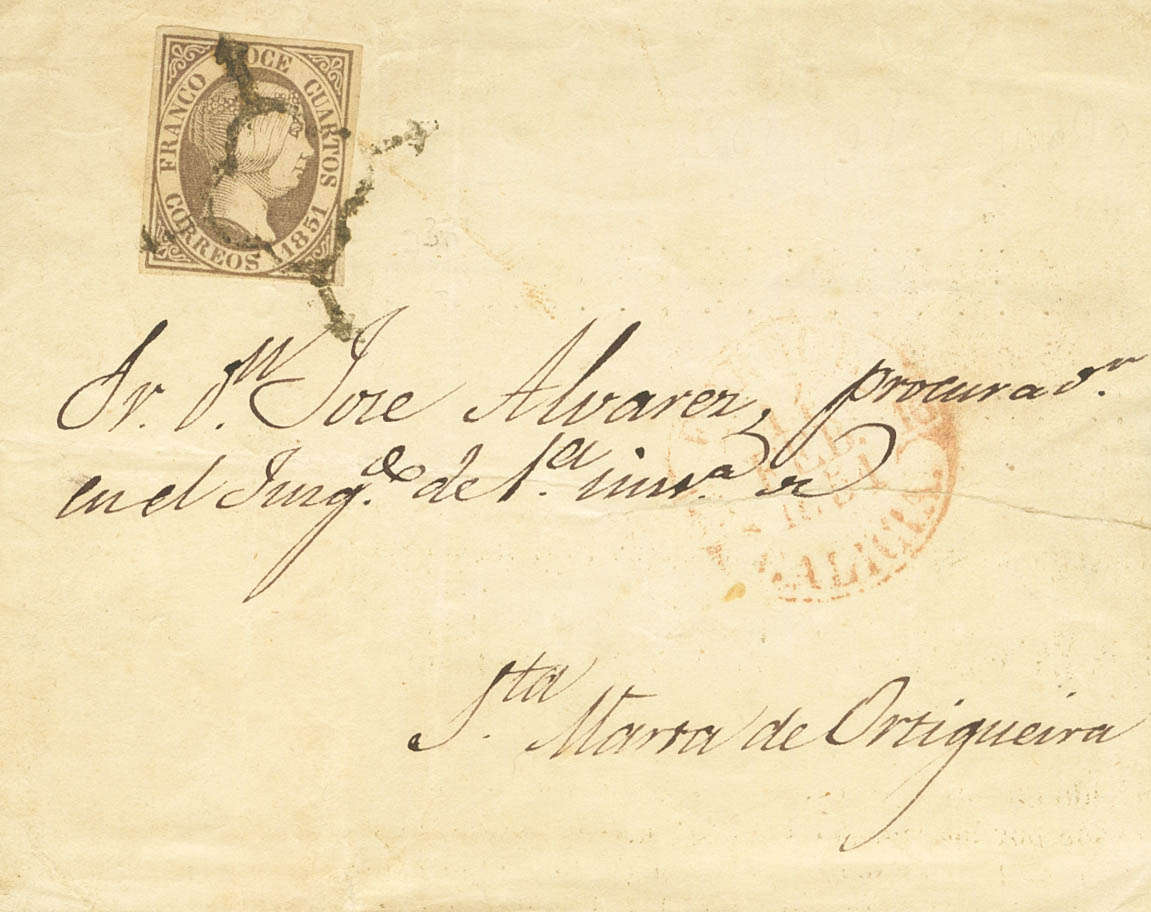 FRANCO DOCE CUARTOS
CORREOS 1851
Sr. Dn. Jose Alvarez, procurador.
en el Juzg.do de 1.a inst.a de
1851
Sta. Marta de Ortigueira